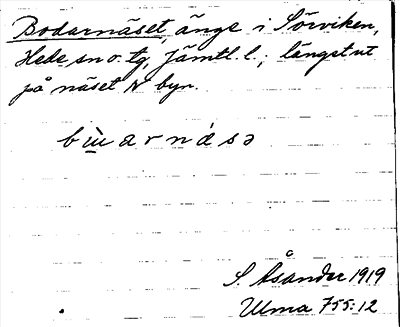 Bodarnäset, änge i Sörviken,
Hede sn o. tg, Jämtl. l.; längst ut
på näset N byn.
bùarnásə
S. Åsander 1919
Ulma 755:12